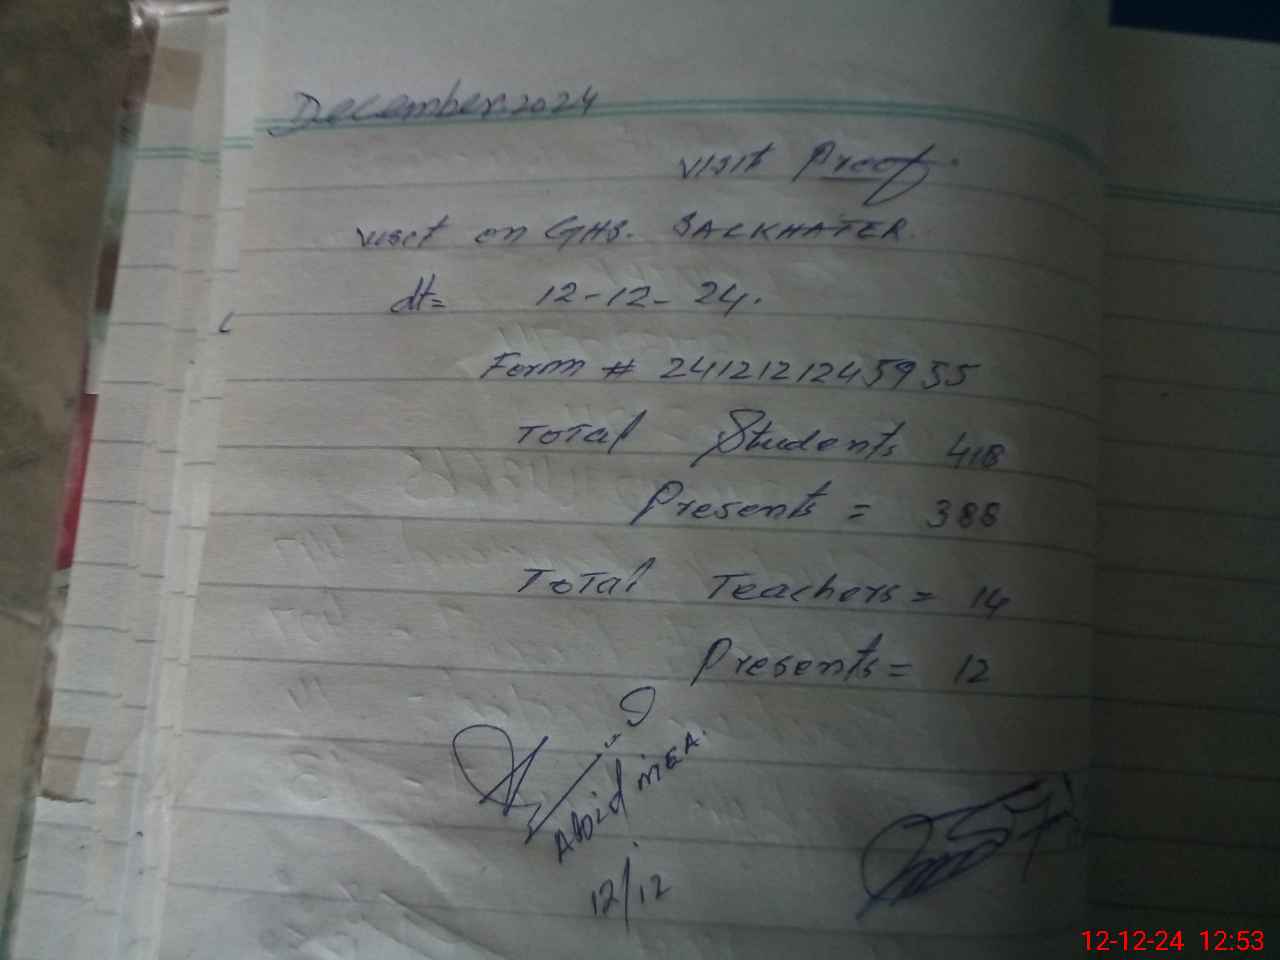 December.2024
visit Proof.
visit on GHS. SACKHATER.
dt= 12-12-24.
Form # 24121212459 55
Total Students 418
Presents = 388
Total Teachers = 14
Presents = 12
Abid MEA.
12/12
12-12-24 12:53